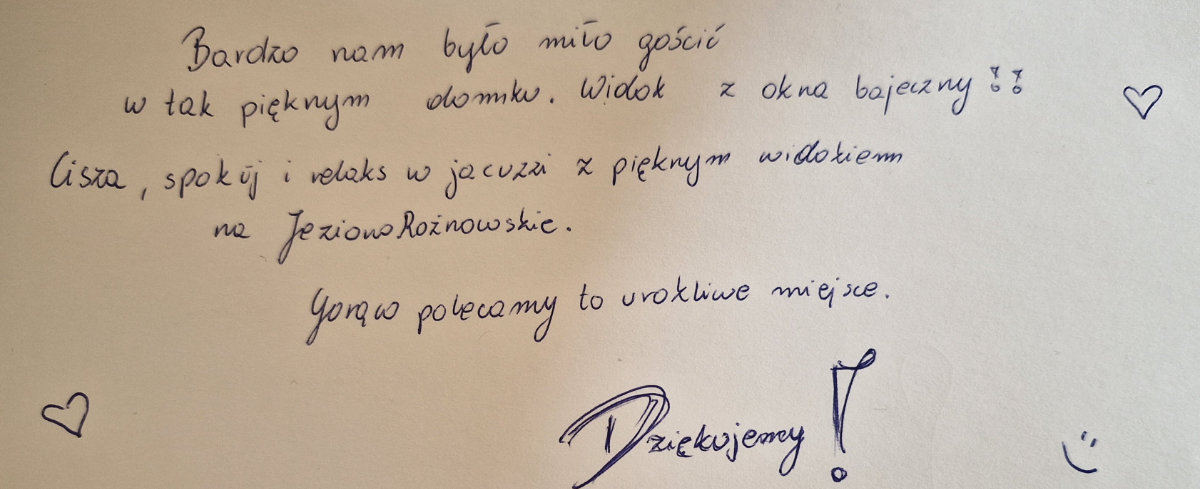 Bardzo nam było miło gościć
w tak pięknym domku. Widok z okna bajeczny!!
Cisza, spokój i relaks w jacuzzi z pięknym widokiem
na Jezioro Rożnowskie.
Gorąco polecamy to urokliwe miejsce.
Dziękujemy!